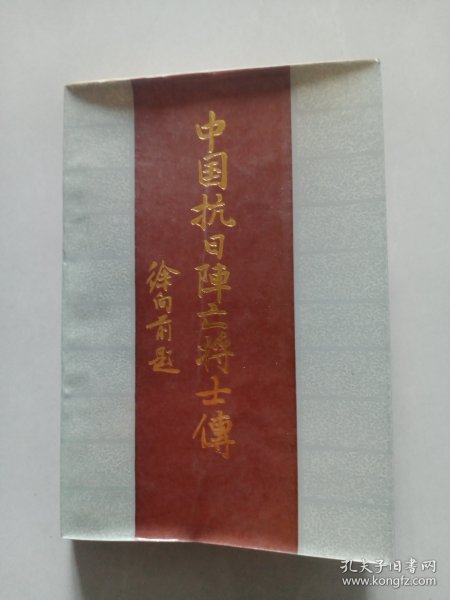 中国抗日陣亡将士傳
徐向前题
孔夫子旧书网
www.kongfz.com